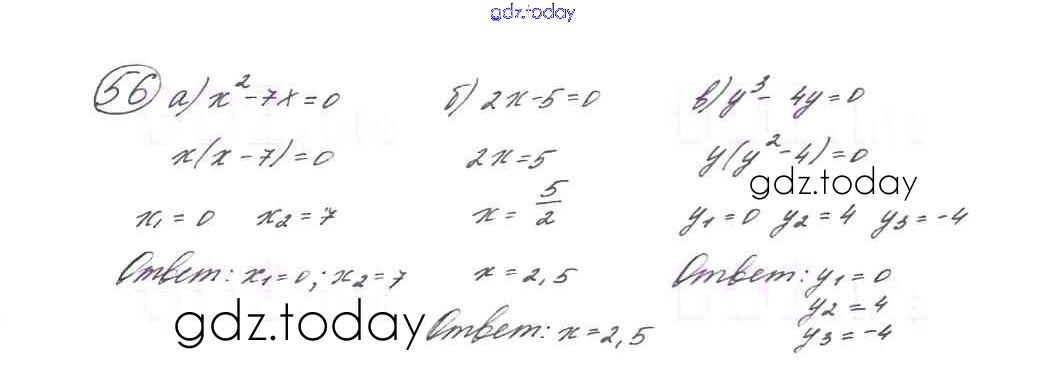 gdz.today
56 а) x² - 7x = 0
x(x - 7) = 0
x₁ = 0 x₂ = 7
Ответ: x₁ = 0; x₂ = 7
б) 2x - 5 = 0
2x = 5
x = 5/2
x = 2,5
Ответ: x = 2,5
в) y³ - 4y = 0
y(y² - 4) = 0
gdz.today
y₁ = 0 y₂ = 4 y₃ = -4
Ответ: y₁ = 0
y₂ = 4
y₃ = -4
gdz.today